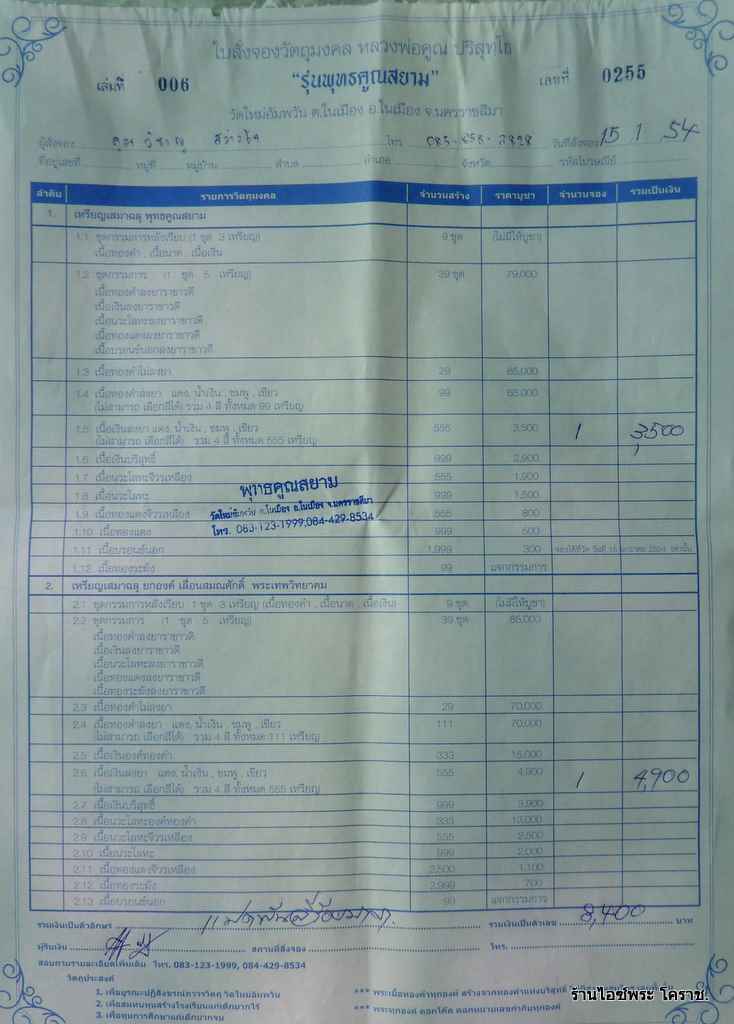 ใบสั่งจองวัตถุมงคล หลวงพ่อคูณ ปริสุทฺโธ
เล่มที่ 006 "รุ่นพุทธคูณสยาม" เลขที่ 0255
วัดใหม่อัมพวัน ต.ในเมือง อ.ในเมือง จ.นครราชสีมา
ผู้สั่งจอง โทร วันที่สั่งจอง 15 1 54
ที่อยู่เลขที่ หมู่ที่ หมู่บ้าน ตำบล อำเภอ จังหวัด รหัสไปรษณีย์
ลำดับ รายการวัตถุมงคล จำนวนสร้าง ราคาบูชา จำนวนจอง รวมเป็นเงิน
1. เหรียญเสมาฉลุ พุทธคูณสยาม
1.1 ชุดกรรมการหลังเรียบ (1 ชุด 3 เหรียญ) 9 ชุด (ไม่มีให้บูชา)
เนื้อทองคำ , เนื้อนาค , เนื้อเงิน
1.2 ชุดกรรมการ (1 ชุด 5 เหรียญ) 39 ชุด 79,000
เนื้อทองคำลงยาราชาวดี
เนื้อเงินลงยาราชาวดี
เนื้อนวะโลหะลงยาราชาวดี
เนื้อทองแดงลงยาราชาวดี
เนื้อบรอนซ์นอกลงยาราชาวดี
1.3 เนื้อทองคำไม่ลงยา 29 65,000
1.4 เนื้อทองคำลงยา แดง, น้ำเงิน , ชมพู , เขียว 99 65,000
(ไม่สามารถ เลือกสีได้) รวม 4 สี ทั้งหมด 99 เหรียญ
1.5 เนื้อเงินลงยา แดง, น้ำเงิน , ชมพู , เขียว 555 3,500 1 3,500
(ไม่สามารถ เลือกสีได้) รวม 4 สี ทั้งหมด 555 เหรียญ
1.6 เนื้อเงินบริสุทธิ์ 999 2,900
1.7 เนื้อนวะโลหะจีวรเหลือง 555 1,900
1.8 เนื้อนวะโลหะ 999 1,500
1.9 เนื้อทองแดงจีวรเหลือง 555 800
1.10 เนื้อทองแดง 999 500
1.11 เนื้อบรอนซ์นอก 1,999 300
1.12 เนื้อทองระฆัง 99 แจกกรรมการ
พุทธคูณสยาม
วัดใหม่อัมพวัน ต.ในเมือง อ.ในเมือง จ.นครราชสีมา
โทร. 083-123-1999,084-429-8534
2. เหรียญเสมาฉลุ ยกองค์ เลื่อนสมณศักดิ์ พระเทพวิทยาคม
2.1 ชุดกรรมการหลังเรียบ 1 ชุด 3 เหรียญ (เนื้อทองคำ , เนื้อนาค , เนื้อเงิน) 9 ชุด (ไม่มีให้บูชา)
2.2 ชุดกรรมการ (1 ชุด 5 เหรียญ) 39 ชุด 85,000
เนื้อทองคำลงยาราชาวดี
เนื้อเงินลงยาราชาวดี
เนื้อนวะโลหะลงยาราชาวดี
เนื้อทองแดงลงยาราชาวดี
เนื้อทองระฆังลงยาราชาวดี
2.3 เนื้อทองคำไม่ลงยา 29 70,000
2.4 เนื้อทองคำลงยา แดง, น้ำเงิน , ชมพู , เขียว 111 70,000
(ไม่สามารถ เลือกสีได้) รวม 4 สี ทั้งหมด 111 เหรียญ
2.5 เนื้อเงินองค์ทองคำ 333 15,000
2.6 เนื้อเงินลงยา แดง, น้ำเงิน , ชมพู , เขียว 555 4,900 1 4,900
(ไม่สามารถ เลือกสีได้) รวม 4 สี ทั้งหมด 555 เหรียญ
2.7 เนื้อเงินบริสุทธิ์ 999 3,900
2.8 เนื้อนวะโลหะองค์ทองคำ 333 13,000
2.9 เนื้อนวะโลหะจีวรเหลือง 555 2,500
2.10 เนื้อนวะโลหะ 999 2,000
2.11 เนื้อทองแดงจีวรเหลือง 2,500 1,100
2.12 เนื้อทองระฆัง 2,999 700
2.13 เนื้อบรอนซ์นอก 99 แจกกรรมการ
รวมเงินเป็นตัวอักษร แปดพันสี่ร้อยบาท รวมเงินเป็นตัวเลข 8,400 บาท
ผู้รับเงิน สถานที่สั่งจอง โทร.
สอบถามรายละเอียดเพิ่มเติม โทร. 083-123-1999, 084-429-8534
วัตถุประสงค์
1. เพื่อบูรณะปฏิสังขรณ์ถาวรวัตถุ วัดใหม่อัมพวัน *** พระเนื้อทองคำทุกองค์ สร้างจากทองคำแท่งบริสุทธิ์
2. เพื่อสมทบทุนสร้างโรงเรียนแก่เด็กยากไร้ *** พระทุกองค์ ตอกโค๊ด ตอกหมายเลขกำกับทุกองค์
3. เพื่อทุนการศึกษาแก่เด็กยากจน
ร้านไอซ์พระ โคราช.